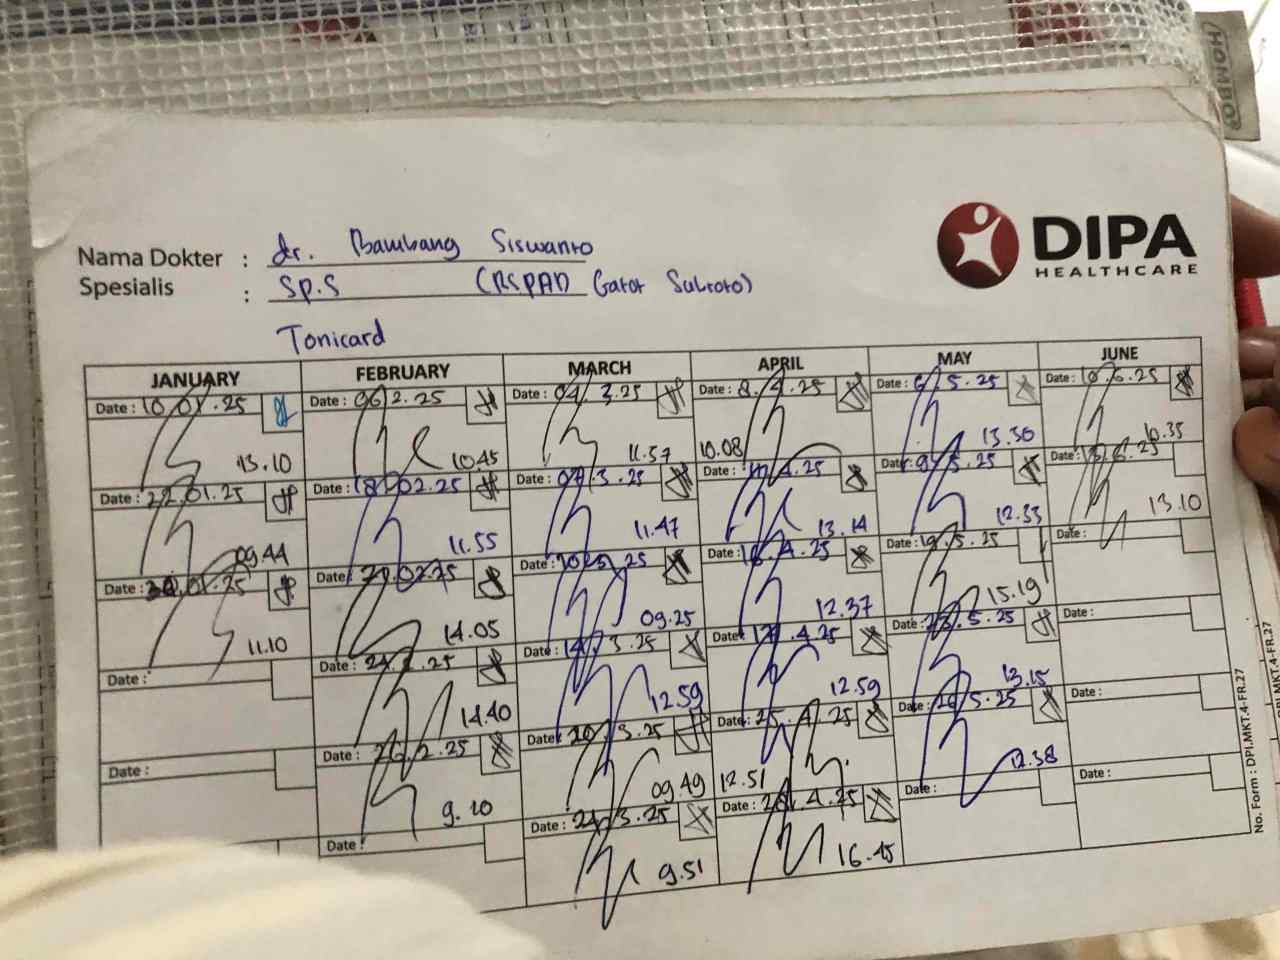 HOMBO
DIPA
HEALTHCARE
Nama Dokter : dr. Bambang Siswanto
Spesialis : Sp.S (RSPAD Gatot Subroto)
Tonicard
JANUARY FEBRUARY MARCH APRIL MAY JUNE
Date : 10.01.25 Date : 06.2.25 Date : 04.3.25 Date : 8.4.25 Date : 6.5.25 Date : 10.6.25
13.10 10.45 11.57 10.08 13.30 10.35
Date : 22.01.25 Date : 18.02.25 Date : 07.3.25 Date : 4.25 Date : 9.5.25 Date : 6.25
09.44 11.55 11.47 13.14 12.33 13.10
Date : 01.25 Date : 02.25 Date : 25 Date : 16.4.25 Date : 19.5.25 Date :
11.10 14.05 09.25 12.37 15.19
Date : Date : 24.2.25 Date : 14.3.25 Date : 17.4.25 Date : 5.25 Date :
14.40 12.59 12.59 13.15
Date : Date : 26.2.25 Date : 20.3.25 Date : 25.4.25 Date : 26.5.25 Date :
9.10 09.49 12.51 12.38
Date : Date : 24.3.25 Date : 4.25 Date : Date :
9.51 16.45
No. Form : DPI.MKT.4-FR.27